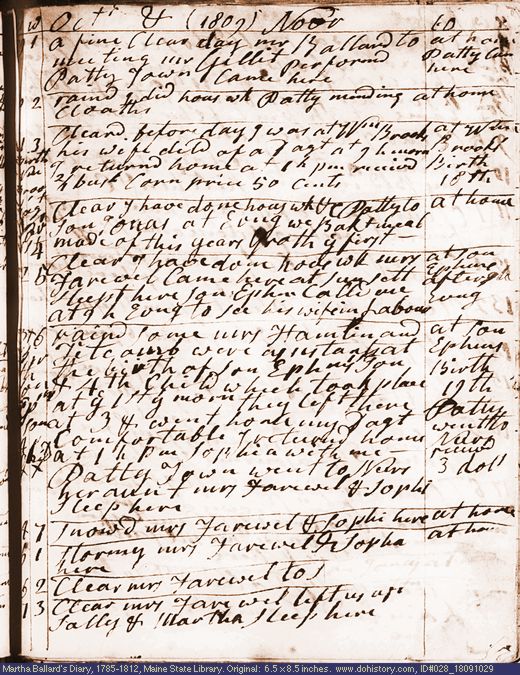 Oct & (1809) Novr
1 a fine Clear day mr Ballard to at home
meeting mr Gillet Perform Patty Town
Patty Town Came here here
2 raind I did hous wk Patty mending at home
Cloaths
3 Cleard before day I was at Wm Brooks at Wm
his wife delt of a Dagt at 9 h morn Brooks
I returned home at 1 h pm receivd Birth
2 bush Corn price 50 Cents 18th
Clear I have done hous wk & Patty to at home
Son Jonas at Evng we Bakt meal
4 made of this years groath ye first
5 Clear I have done hous wk mrs at Son
Farewel Came here at sun sett Ephms
sleeps here Son Ephm Calld me after
at 9 h Evng to see his wife in Labour Evng
6 raind some mrs Hamlin and at Son
were assistants at Ephms
the birth of son Ephms Son Birth
& 4th Child which took place 19th
at morn they left there Patty
at 3 & went home my Dagt went to
Comfortable I returnd home Nurs
at 1 h pm Sophia with me receivd
Patty Town went to Nurs 3 doll
her aunt mrs Farewel & Sophi
sleep here
7 Snowd mrs Farewel & Sophi here at home
1 Stormy mrs Farewel & Sopha at home
here
2 Clear mrs Farewel to S
3 Clear mrs Farewel left us
Sally & Martha sleep here
Martha Ballard's Diary, 1785-1812, Maine State Library. Original: 6.5 x 8.5 inches. www.dohistory.com, ID#028_18091029